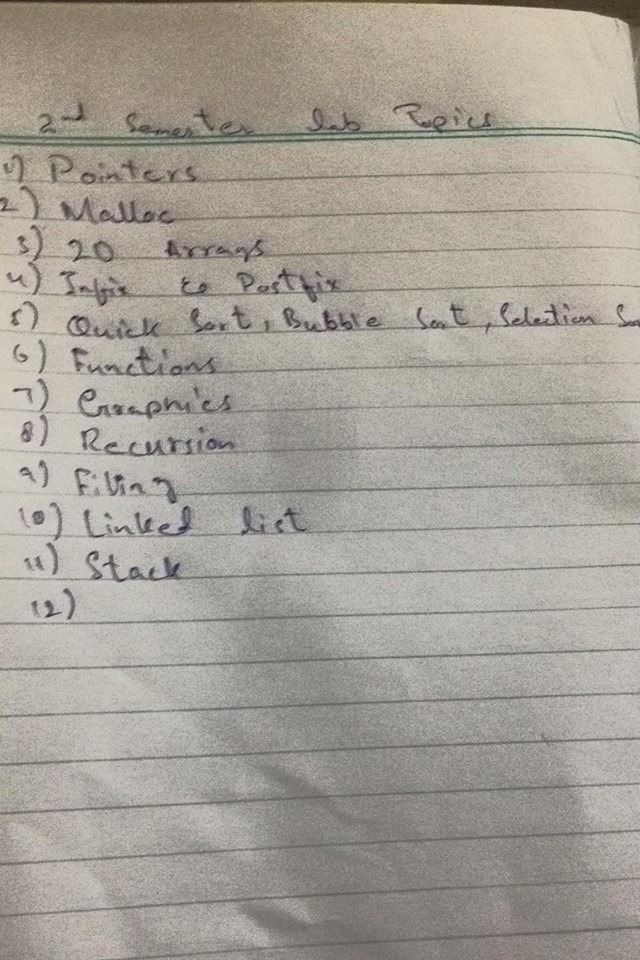 2nd Semester lab Topics
1) Pointers
2) Malloc
3) 2D Arrays
4) Infix to Postfix
5) Quick Sort, Bubble Sort, Selection
6) Functions
7) Graphics
8) Recursion
9) Filing
10) Linked list
11) Stack
12)